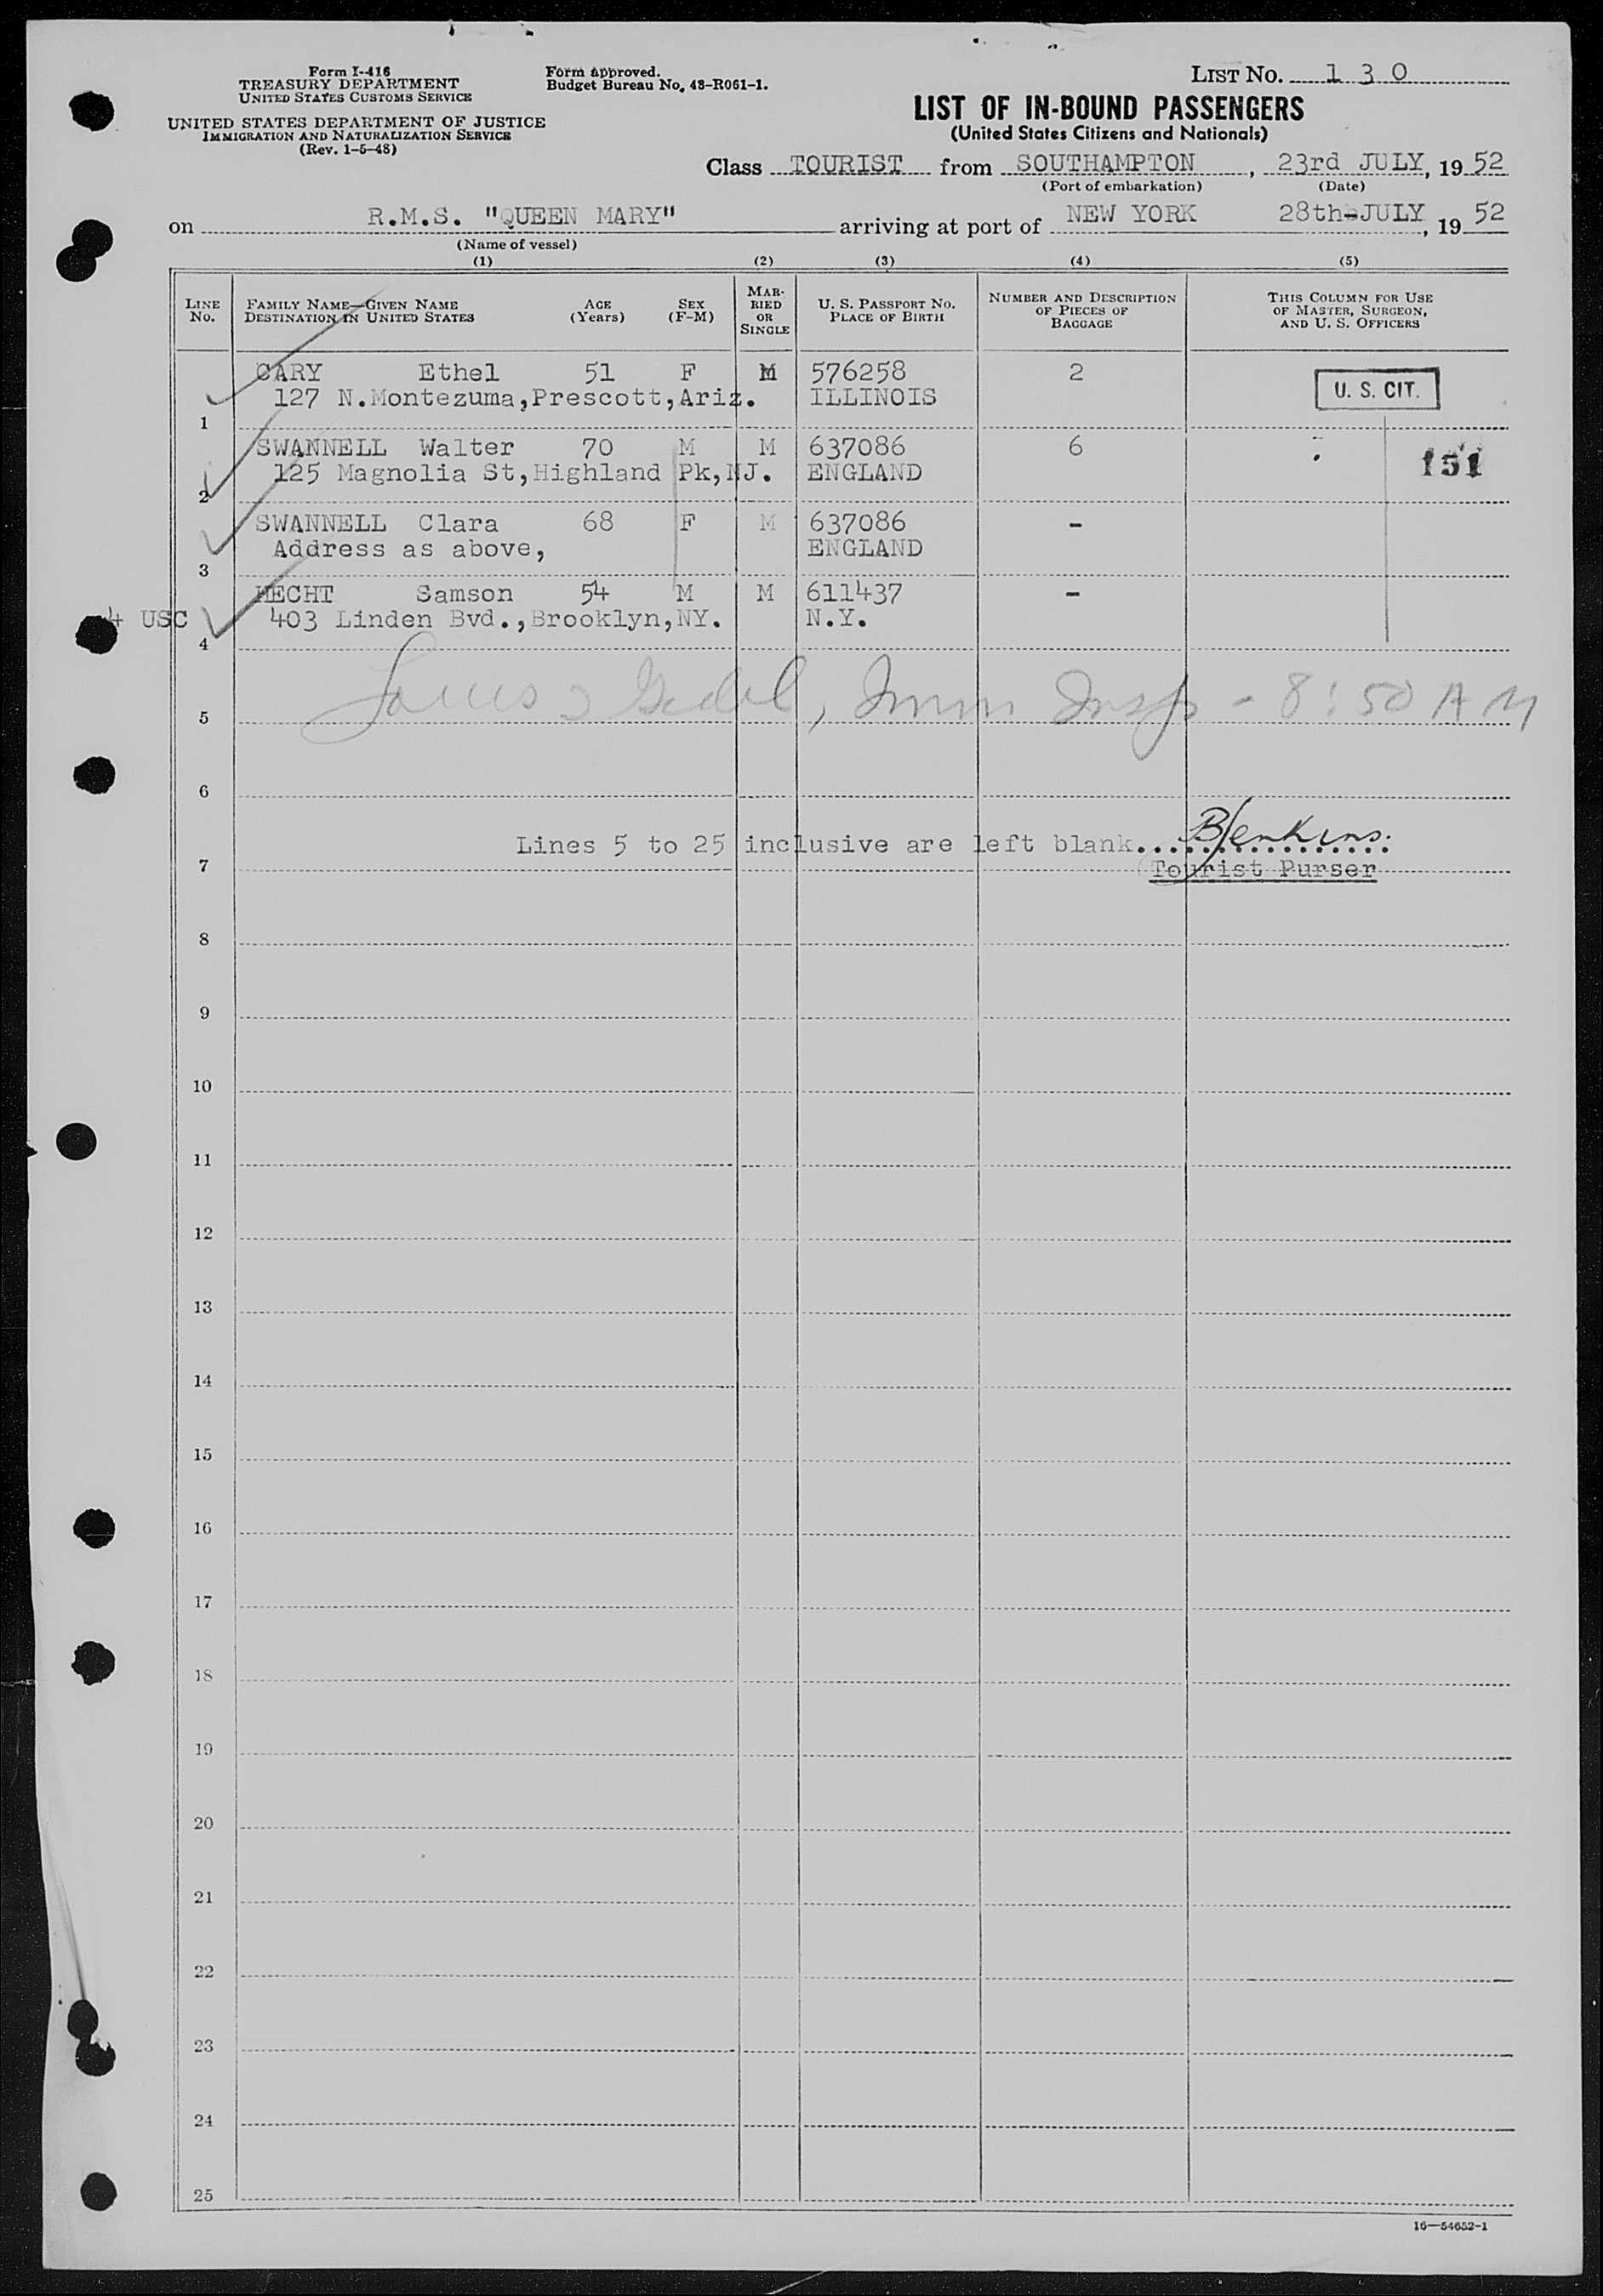 Form I-416
TREASURY DEPARTMENT
UNITED STATES CUSTOMS SERVICE
UNITED STATES DEPARTMENT OF JUSTICE
IMMIGRATION AND NATURALIZATION SERVICE
(Rev. 1-5-48)
Form approved.
Budget Bureau No. 43-R061-1.
LIST NO. 1 3 0
LIST OF IN-BOUND PASSENGERS
(United States Citizens and Nationals)
Class TOURIST from SOUTHAMPTON, 23rd JULY, 19 52
(Port of embarkation) (Date)
on R.M.S. "QUEEN MARY" arriving at port of NEW YORK 28th-JULY, 19 52
(Name of vessel)
(1) (2) (3) (4) (5)
LINE NO. FAMILY NAME—GIVEN NAME DESTINATION IN UNITED STATES AGE (Years) SEX (F-M) MARRIED OR SINGLE U. S. PASSPORT NO. PLACE OF BIRTH NUMBER AND DESCRIPTION OF PIECES OF BAGGAGE THIS COLUMN FOR USE OF MASTER, SURGEON, AND U. S. OFFICERS
CARY Ethel 51 F M 576258 2
127 N.Montezuma,Prescott,Ariz. ILLINOIS U. S. CIT.
1
SWANNELL Walter 70 M M 637086 6
125 Magnolia St,Highland Pk,NJ. ENGLAND 151
2
SWANNELL Clara 68 F M 637086 -
Address as above, ENGLAND
3
HECHT Samson 54 M M 611437 -
4 USC 403 Linden Bvd.,Brooklyn,NY. N.Y.
4
Louis, Imm Insp - 8:50 AM
5
6
Lines 5 to 25 inclusive are left blank. BJenkins.
7 Tourist Purser
8
9
10
11
12
13
14
15
16
17
18
19
20
21
22
23
24
25
16—54652-1